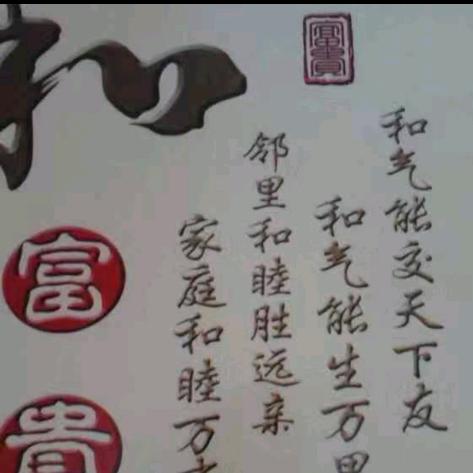 富貴
和气能交天下友
和气能生万
邻里和睦胜远亲
家庭和睦万
和
富
貴